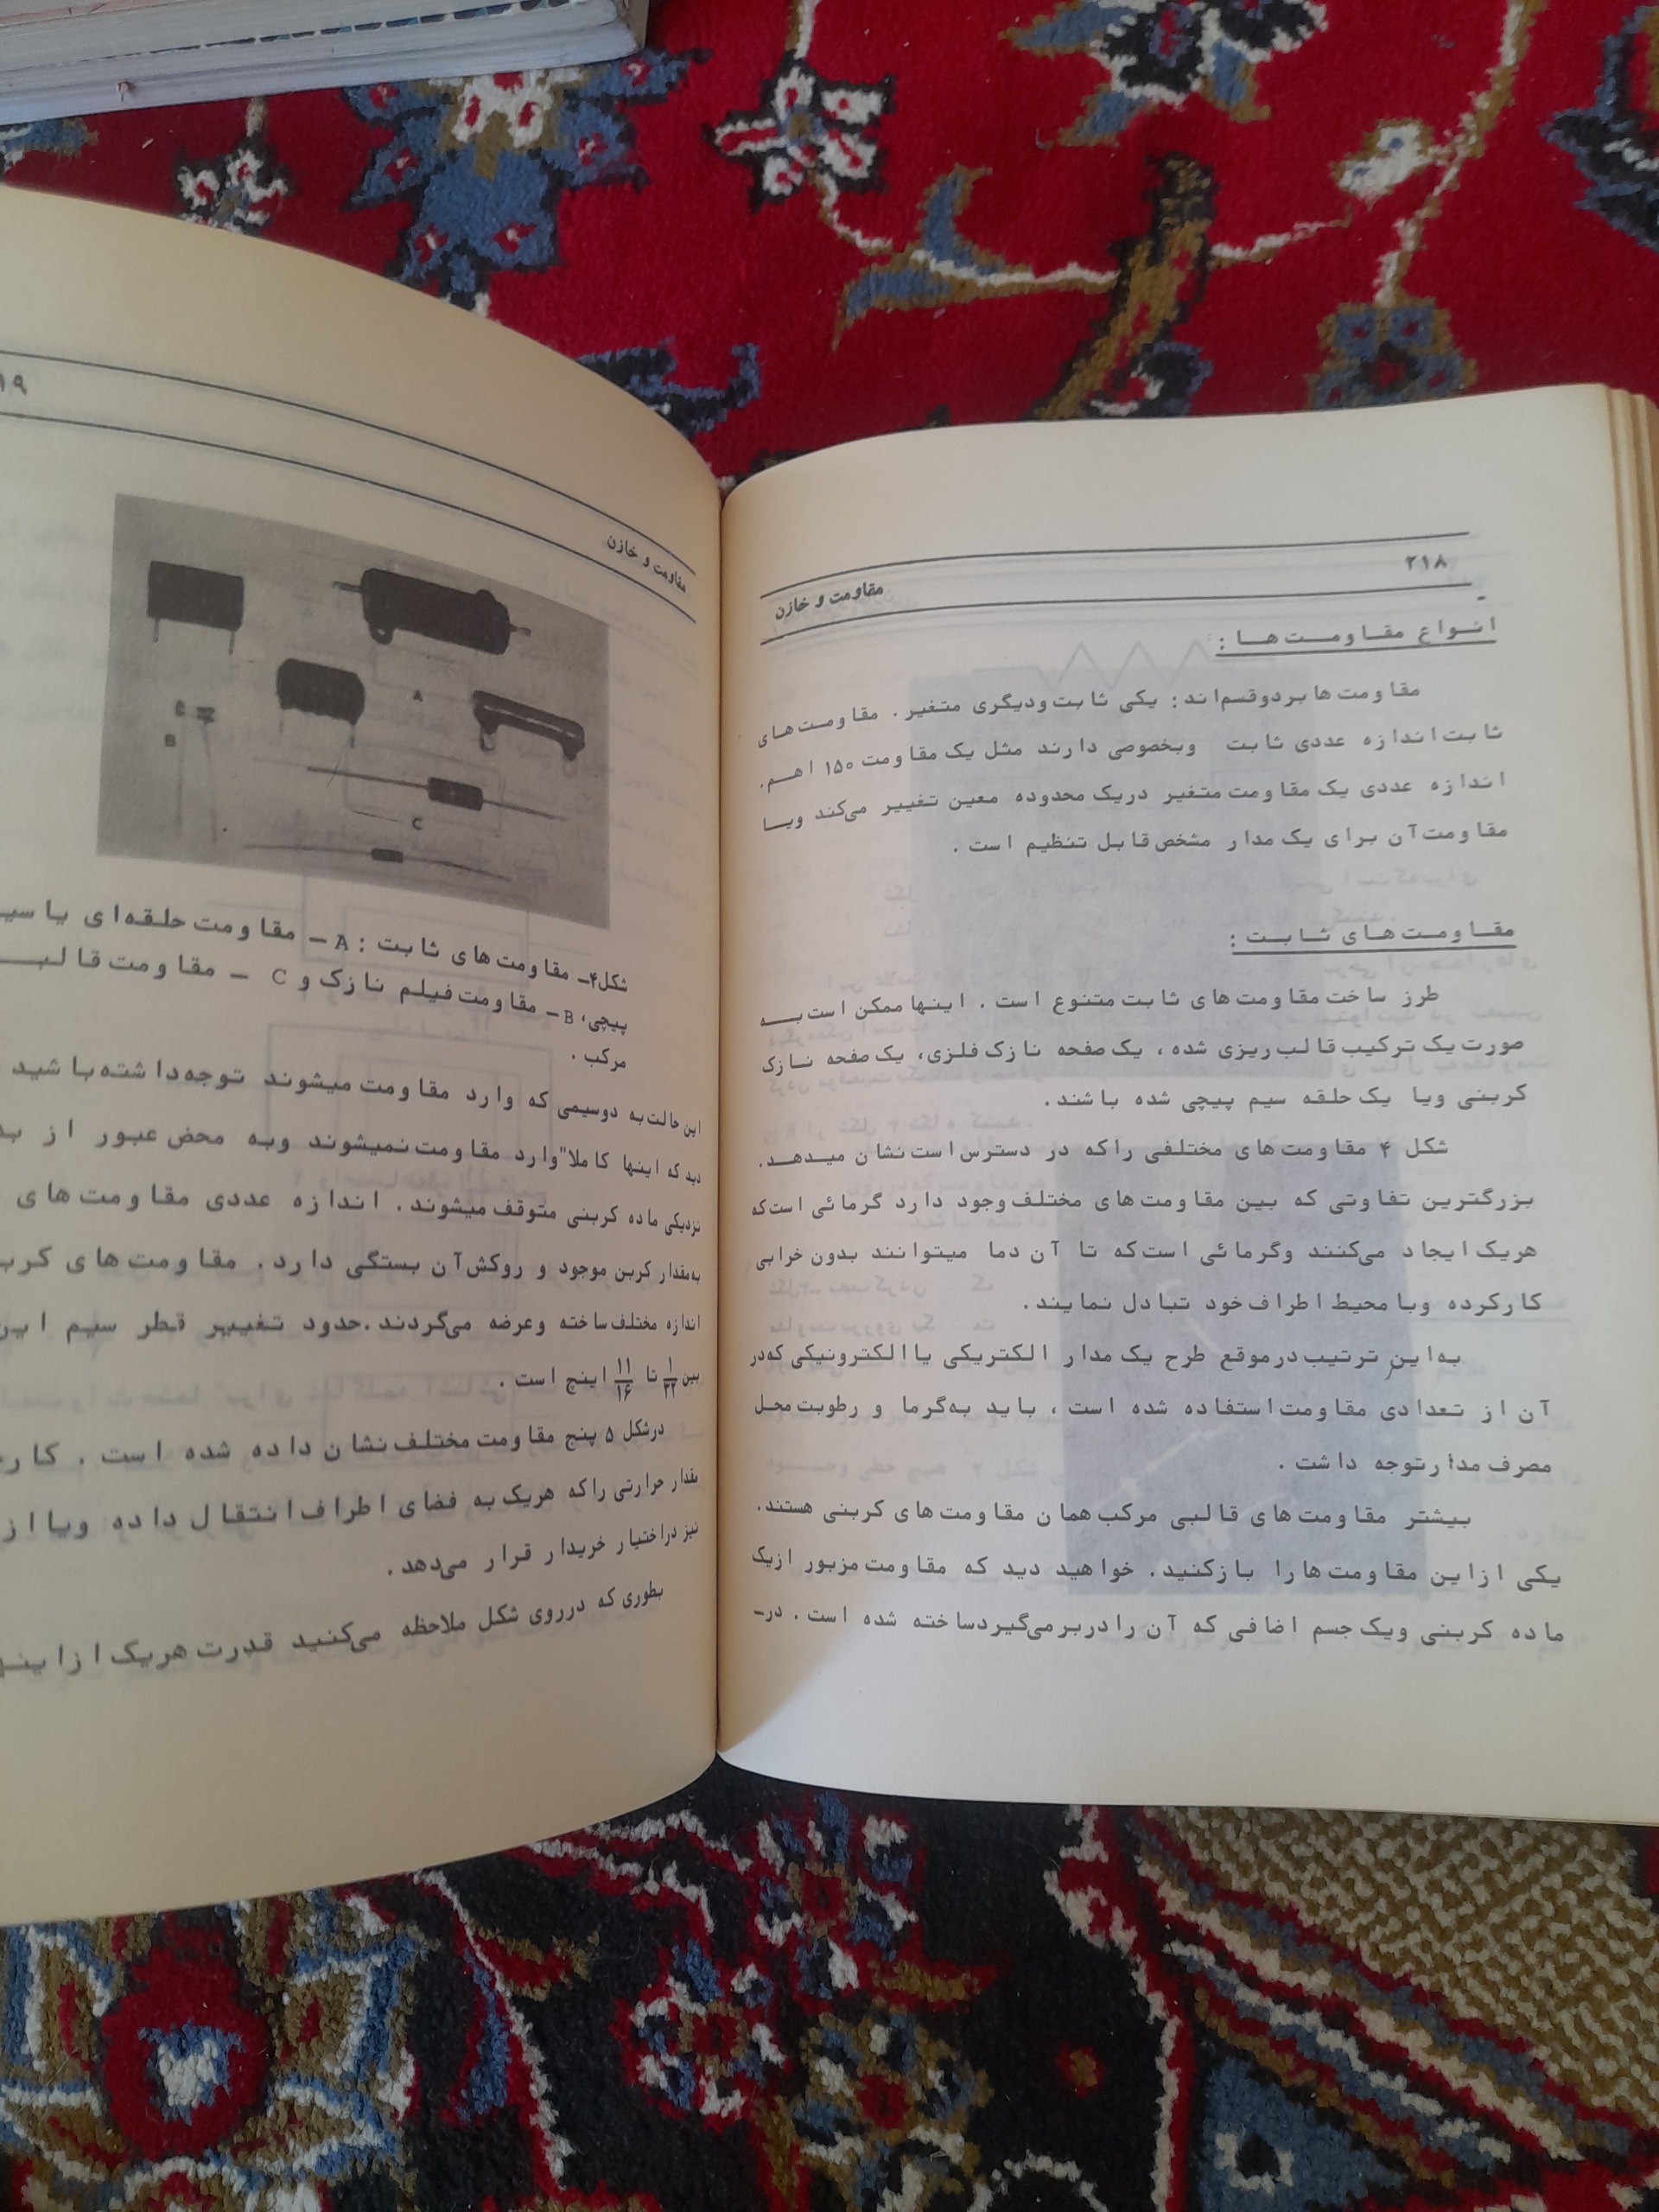 ۲۱۸
مقاومت و خازن
انواع مقاومت‌ها :
مقاومت ها بردوقسم‌اند : یکی ثابت ودیگری متغیر . مقاومت‌های
ثابت اندازه عددی ثابت وبخصوصی دارند مثل یک مقاومت ۱۵۰ اهم .
اندازه عددی یک مقاومت متغیر دریک محدوده معین تغییر می‌کند ویا
مقاومت آن برای یک مدار مشخص قابل تنظیم است .
مقاومت‌های ثابت :
طرز ساخت مقاومت های ثابت متنوع است . اینها ممکن است به
صورت یک ترکیب قالب ریزی شده ، یک صفحه نازک فلزی، یک صفحه نازک
کربنی ویا یک حلقه سیم پیچی شده باشند .
شکل ۴ مقاومت های مختلفی راکه در دسترس است نشان میدهد.
بزرگترین تفاوتی که بین مقاومت های مختلف وجود دارد گرمائی است که
هریک ایجاد می‌کنند وگرمائی است که تا آن دما میتوانند بدون خرابی
کارکرده وبا محیط اطراف خود تبادل نمایند.
به‌این ترتیب درموقع طرح یک مدار الکتریکی یا الکترونیکی که‌در
آن از تعدادی مقاومت استفاده شده است ، باید به‌گرما و رطوبت محل
مصرف مدار توجه داشت .
بیشتر مقاومت های قالبی مرکب همان مقاومت های کربنی هستند.
یکی ازاین مقاومت ها را بازکنید. خواهید دید که مقاومت مزبور ازیک
ماده کربنی ویک جسم اضافی که آن را دربر می‌گیرد ساخته شده است . در-
۱۹
مقاومت و خازن
A
B
C
شکل۴- مقاومت های ثابت : A - مقاومت حلقه‌ای یا
پیچی، B - مقاومت فیلم نازک و C - مقاومت قالب
مرکب .
این حالت به دوسیمی که وارد مقاومت میشوند توجه داشته باشید
دید که اینها کاملا" وارد مقاومت نمیشوند وبه محض عبور از
نزدیکی ماده کربنی متوقف میشوند . اندازه عددی مقاومت های
به‌مقدار کربن موجود و روکش آن بستگی دارد . مقاومت های
اندازه مختلف ساخته وعرضه می‌گردند .حدود تغییر قطر سیم
بین ۱/۳۲ تا ۱۱/۱۶ اینچ است .
درشکل ۵ پنج مقاومت مختلف نشان داده شده است .
مقدار حرارتی راکه هریک به فضای اطراف انتقال داده ویا از
نیز دراختیار خریدار قرار می‌دهد .
بطوری که درروی شکل ملاحظه می‌کنید قدرت هریک از